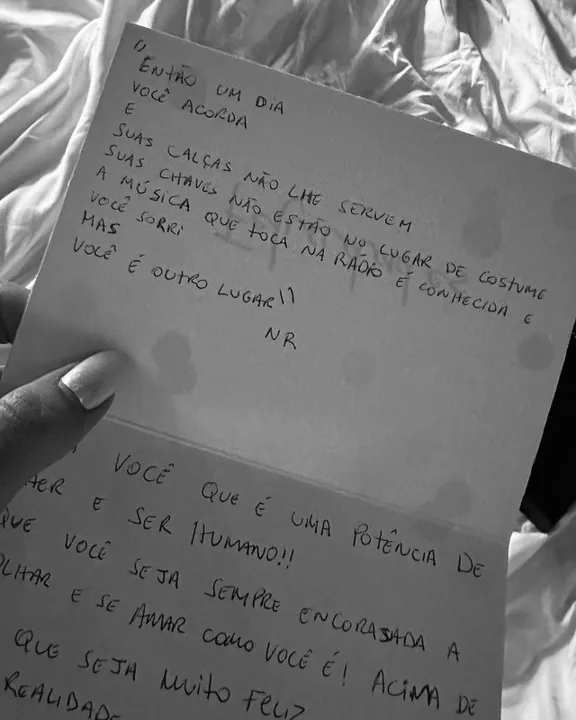 " ENTÃO UM DIA
VOCÊ ACORDA
E
SUAS CALÇAS NÃO LHE SERVEM
SUAS CHAVES NÃO ESTÃO NO LUGAR DE COSTUME
A MÚSICA QUE TOCA NA RÁDIO É CONHECIDA E
VOCÊ SORRI
MAS
VOCÊ É OUTRO LUGAR"
NR
VOCÊ QUE É UMA POTÊNCIA DE
E SER HUMANO!!
QUE VOCÊ SEJA SEMPRE ENCORASADA A
OLHAR E SE AMAR COMO VOCÊ É! ACIMA DE
QUE SEJA MUITO FELIZ
REALIDADE